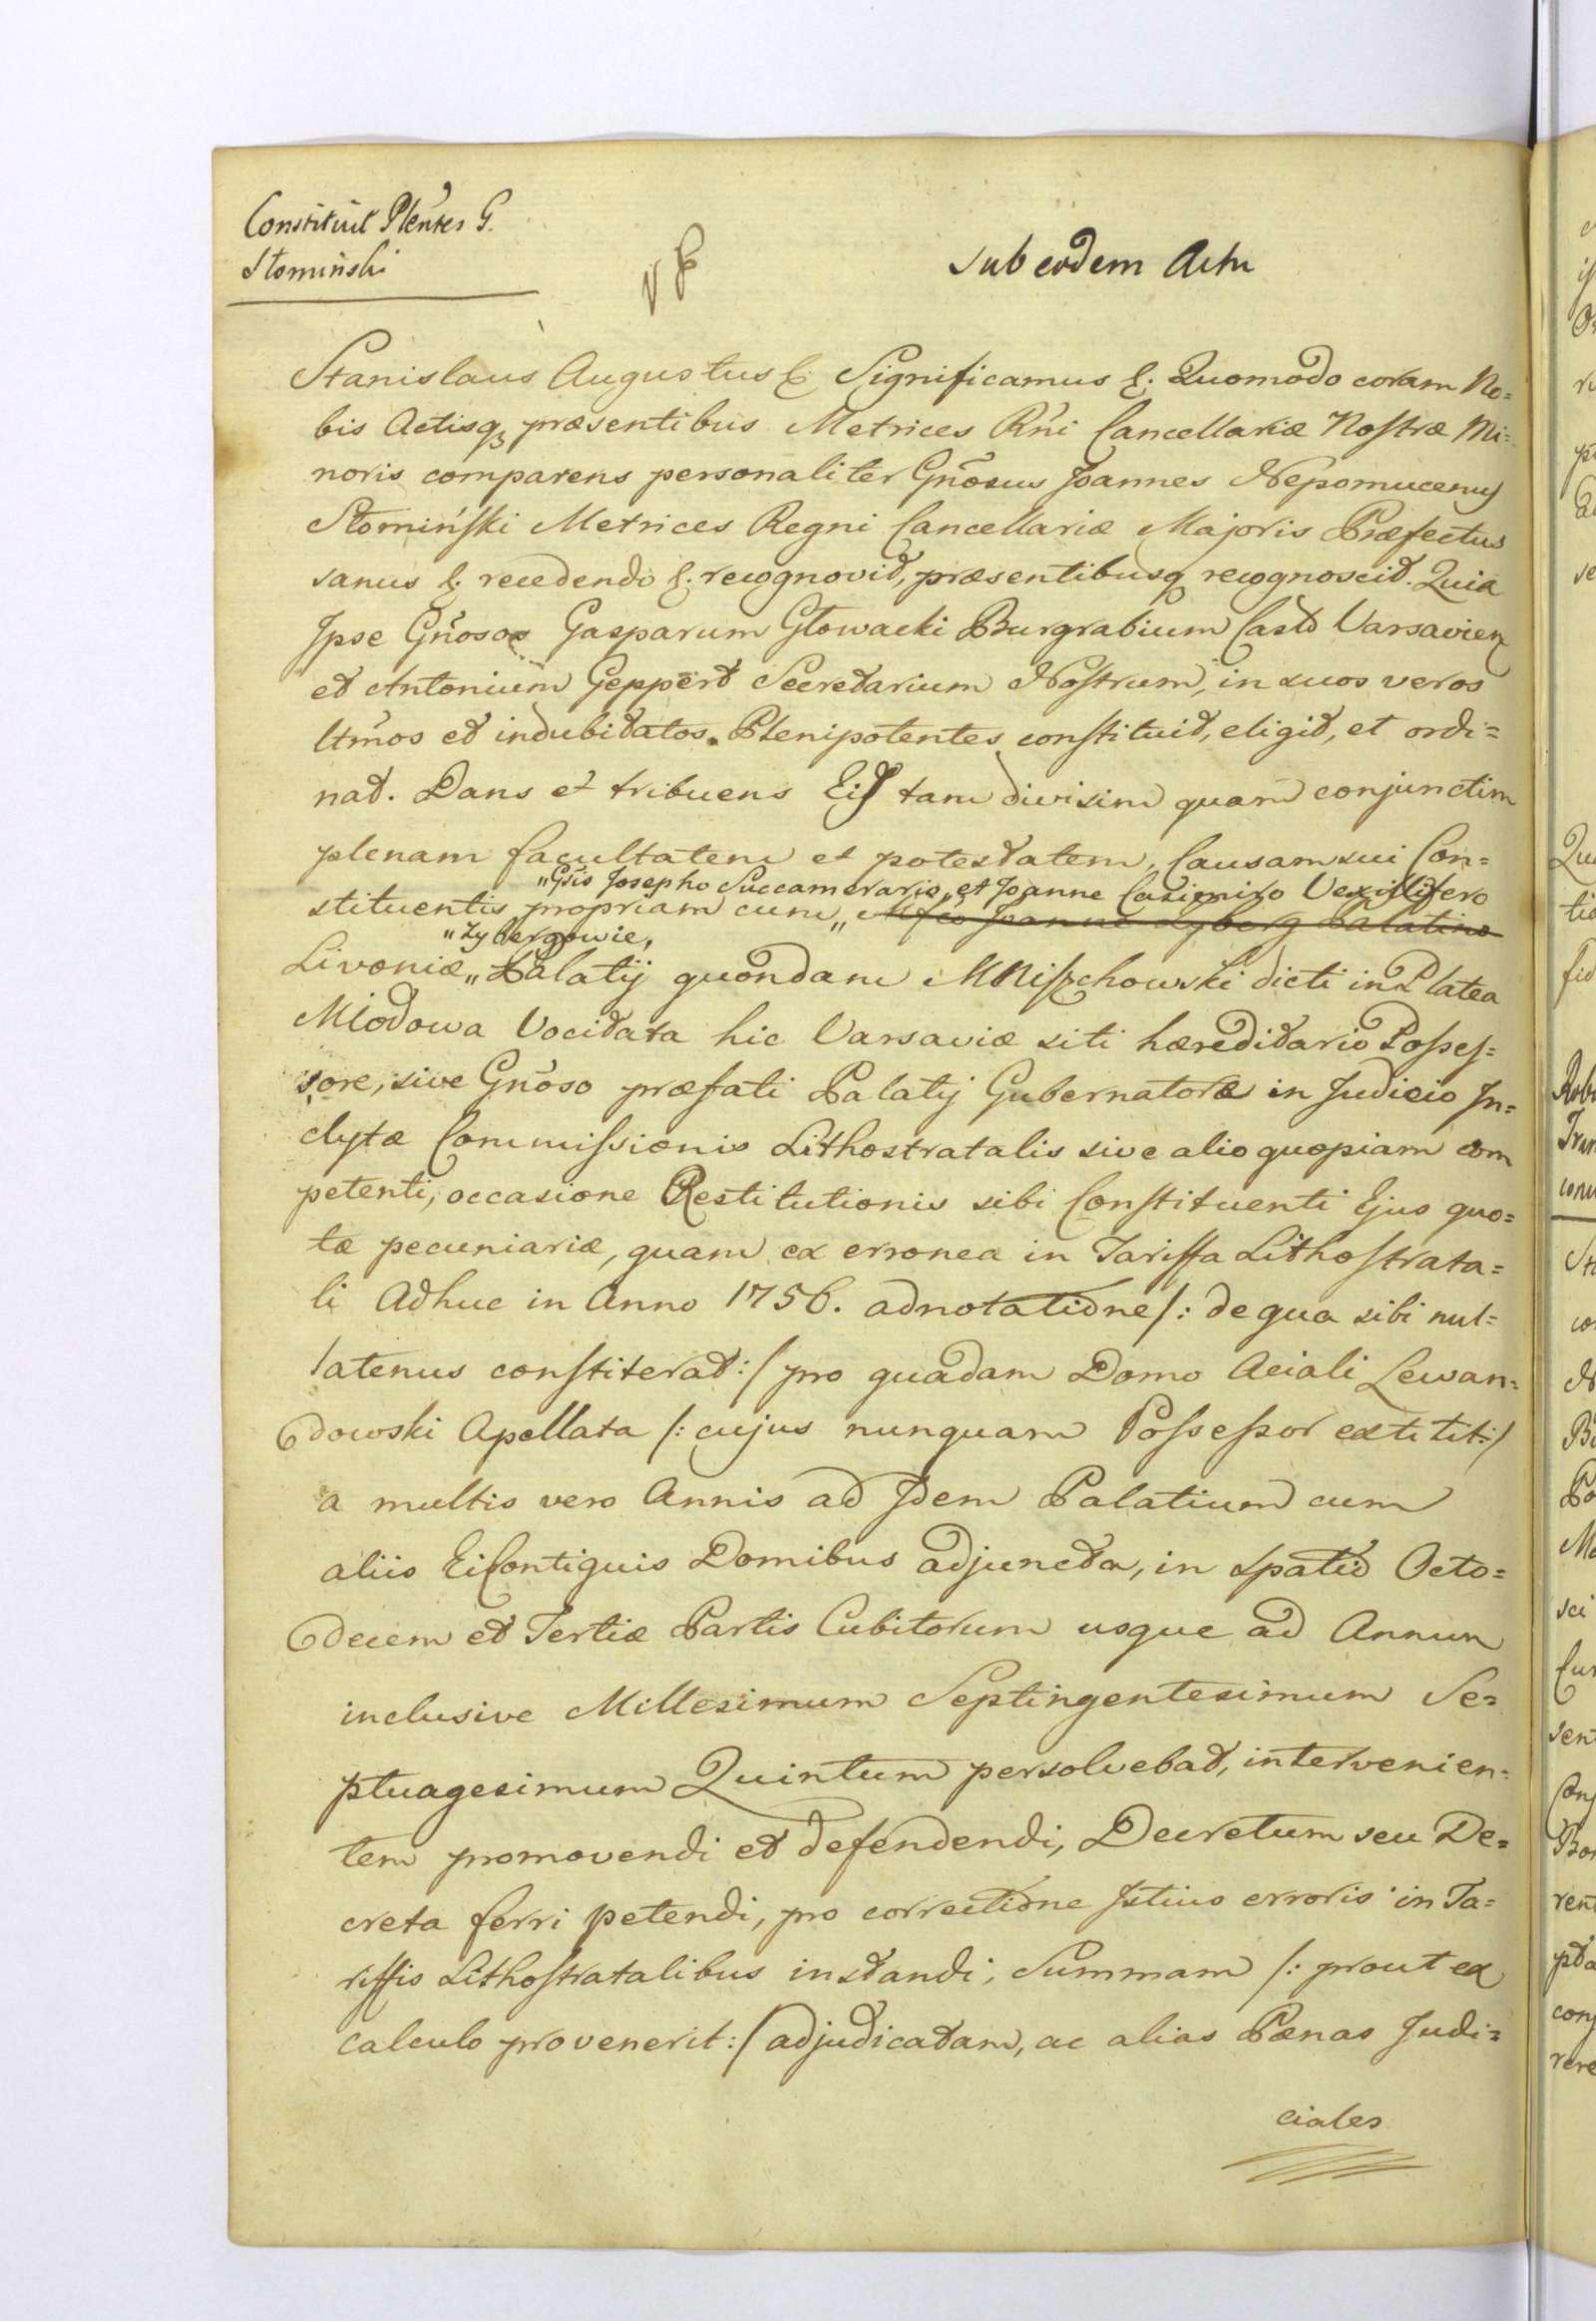 Constituit Pleñtes G.
Słomiński
sub eodem Actu
Stanislaus Augustus &. Significamus &. Quomodo coram No=
bis Actisq3 præsentibus Metrices Rñi Cancellariæ Nostræ Mi=
noris comparens personaliter Gñosus Joannes Nepomucenus
Słomiński Metrices Regni Cancellariæ Majoris Præfectus
sanus &. recedendo &. recognovit, præsentibusq recognoscit. Quia
Ipse Gñosos Gasparum Głowacki Burgrabium Cast Varsavien
et Antonium Geppert Secretarium Nostrum, in suos veros
ltmõs et indubitatos Plenipotentes constituit, eligit, et ordi=
nat. Dans et tribuens Eis tam divisim quam conjunctim
plenam facultatem et potestatem, Causam sui Con=
"Gsis Josepho Succamerario, et Joanne Casimiro Vexillifero
stituentis propriam cum „ Mfco Joanne Zyberg Palatino
"Zybergowie,
Livoniæ „ Palatij quondam Mniszchowski dicti in Platea
Miodowa Vocitata hic Varsaviæ siti hæreditario Posses=
sore, sive Gñoso præfati Palatij Gubernatore in Judicio In=
clytæ Commissionis Lithostratalis sive alio quopiam com
petenti, occasione Restitutionis sibi Constituenti Ejus quo=
tæ pecuniariæ, quam ex erronea in Tariffa Lithostrata=
li Adhuc in Anno 1756. adnotatione /: de qua sibi nul=
latenus constiterat :/ pro quadam Domo Aciali Lewan=
dowski Apellata /: cujus nunquam Possessor extitit :/
a multis vero Annis ad Idem Palatium cum
aliis Ei Contiguis Domibus adjuncta, in spatio Octo=
decem et Tertiæ Partis Cubitorum usque ad Annum
inclusive Millesimum Septingentesimum Se=
ptuagesimum Quintum persolvebat, intervenien=
tem promovendi et defendendi, Decretum seu De=
creta ferri petendi, pro correctione Istius erroris in Ta=
riffis Lithostratalibus instandi, Summam /: prout ex
calculo provenerit :/ adjudicatam, ac alias Pænas Judi=
ciales